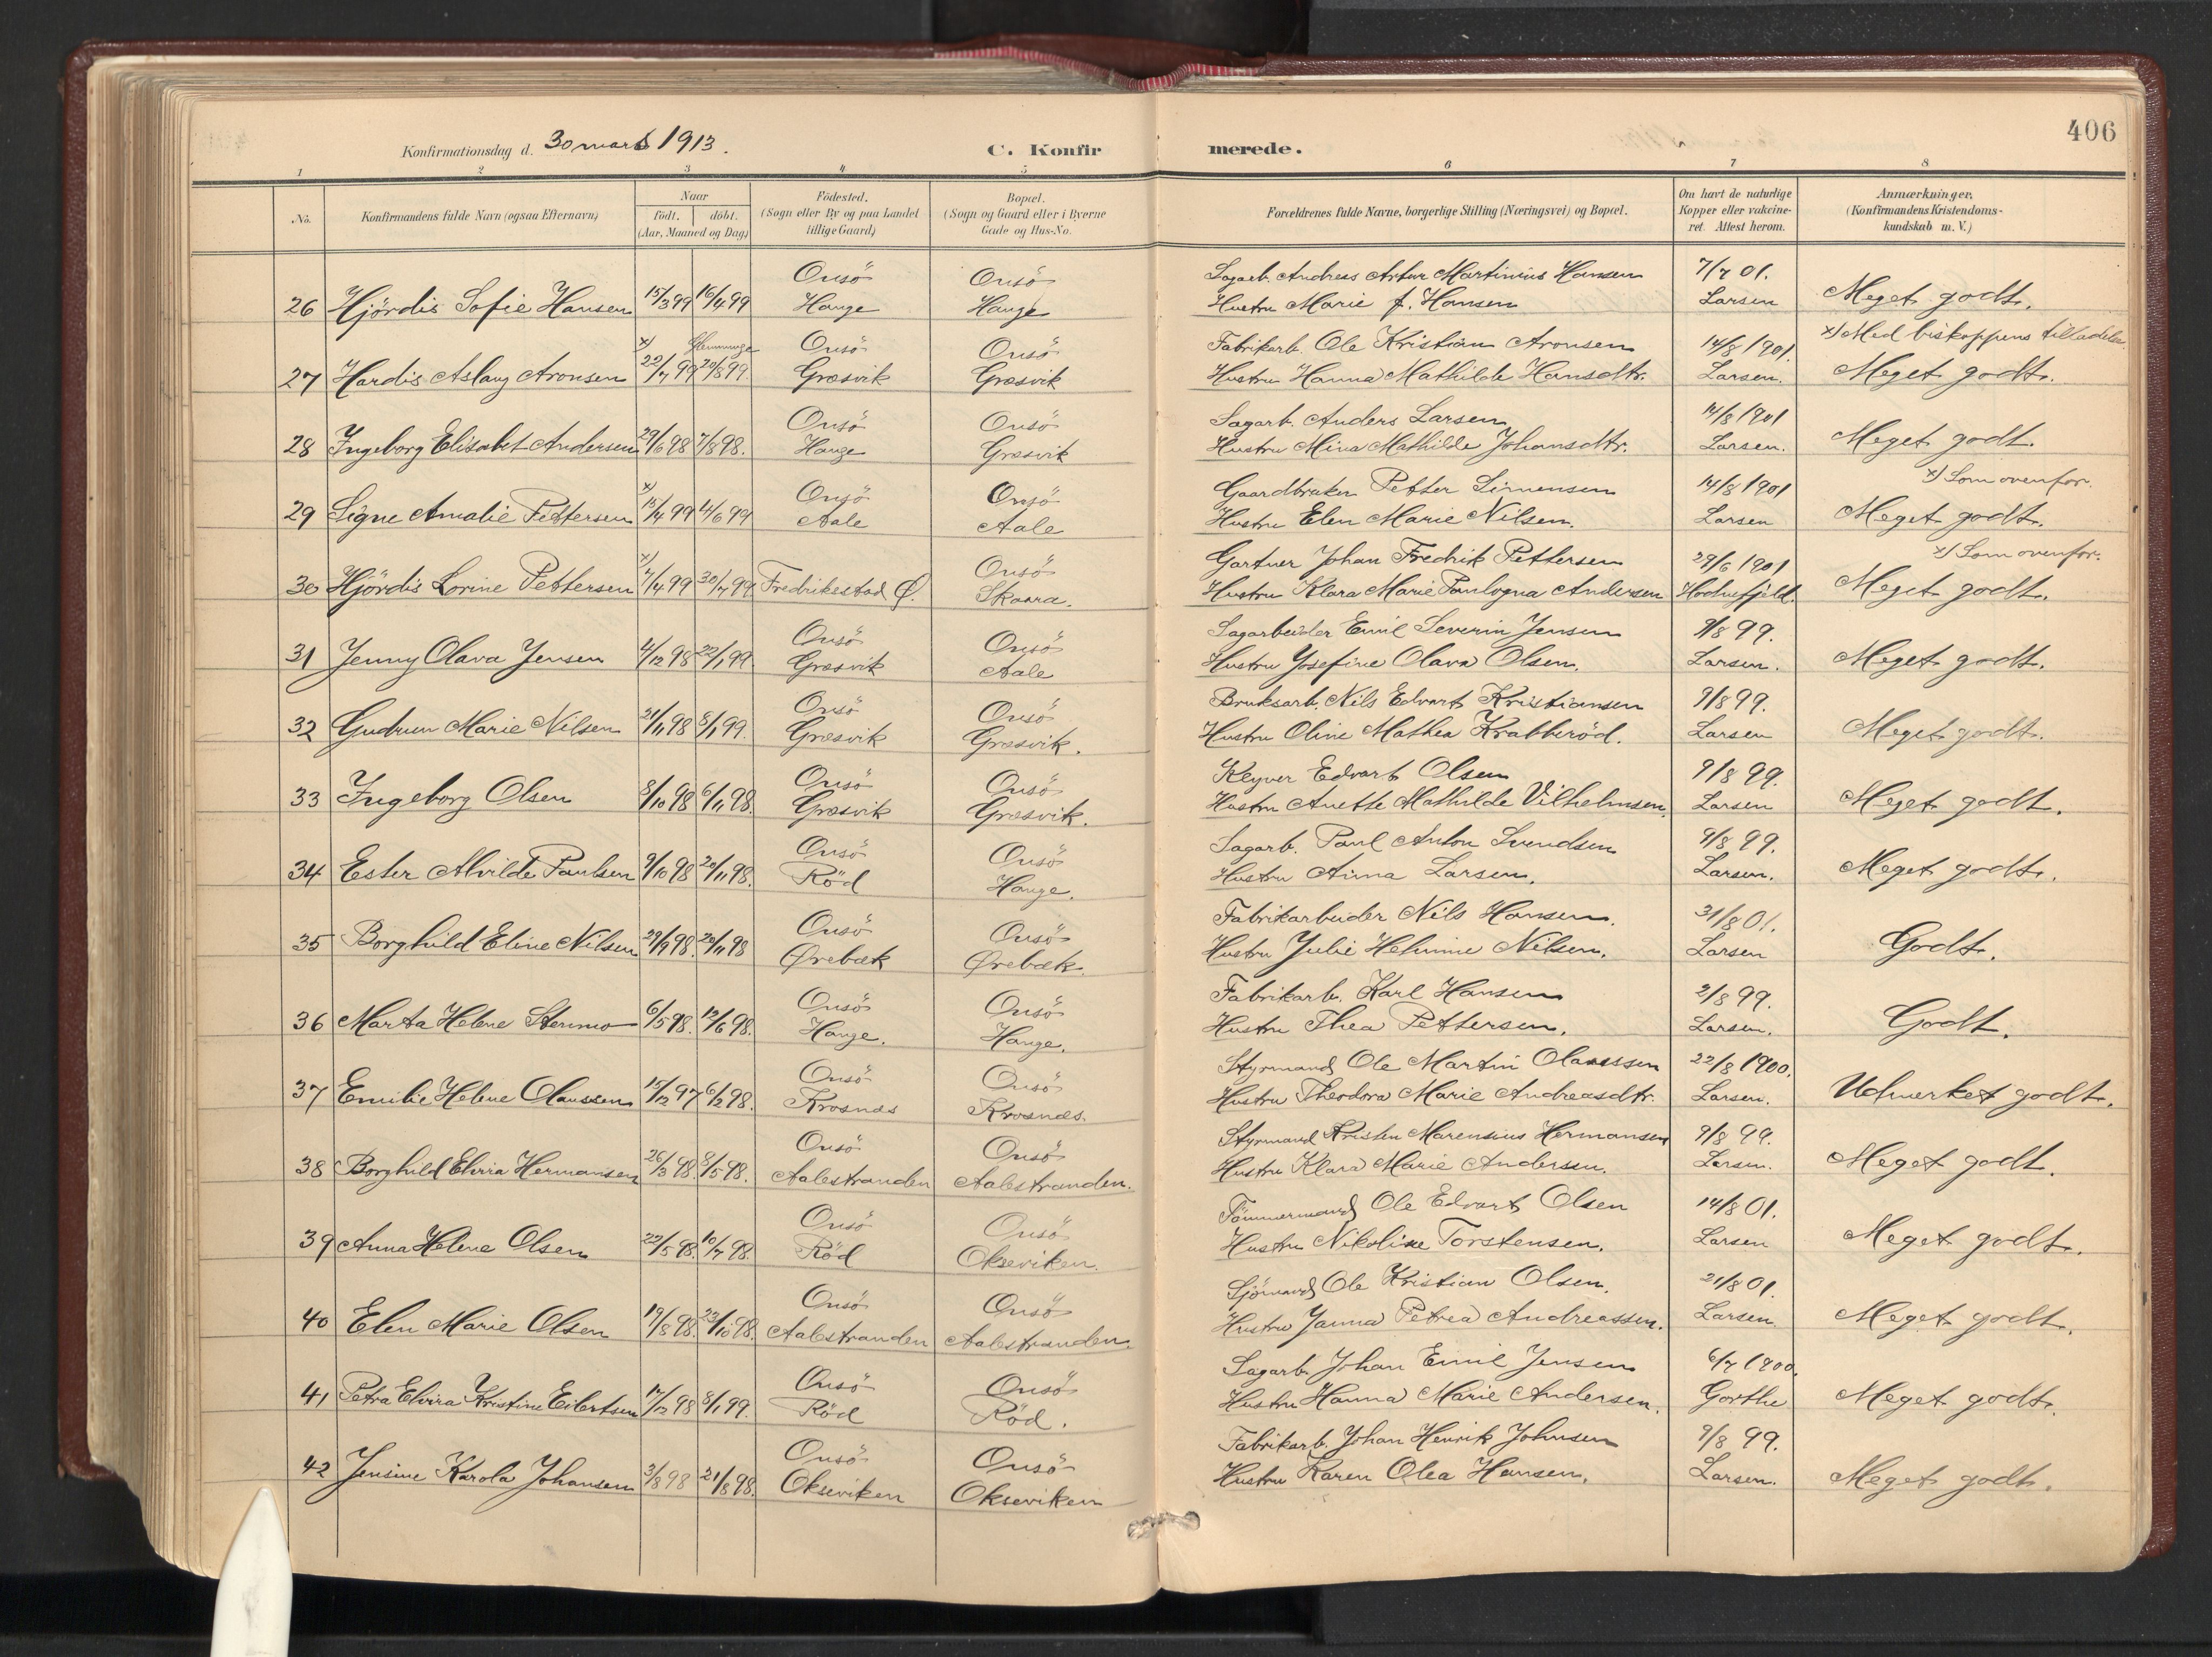 406
Konfirmationsdag d. 30 mars 1913.
C. Konfirmerede.
1 2 3 4 5 6 7 8
No. Konfirmandens fulde Navn (ogsaa Efternavn) Naar födt. döbt. (Aar, Maaned og Dag) Födested. (Sogn eller By og paa Landet tillige Gaard) Bopæl. (Sogn og Gaard eller i Byerne Gade og Hus-No. Forældrenes fulde Navne, borgerlige Stilling (Næringsvei) og Bopæl. Om havt de naturlige Kopper eller vakcineret. Attest herom. Anmærkninger. (Konfirmandens Kristendomskundskab m. V.)
Onsö Onsö Sagarb. Andreas Artur Martinius Hansen 7/7 01.
26 Hjördis Sofie Hansen 15/3 99 16/4 99 Hauge Hauge Hustru Marie f. Hansen Larsen Meget godt.
x) Glemminge Onsö Onsö Fabrikarb. Ole Kristian Aronsen 14/8 1901. x) Med biskoppens tilladelse.
27 Hardis Aslaug Aronsen 22/7 99 20/8 99. Græsvik Græsvik Hustru Hanna Mathilde Hansdtr. Larsen. Meget godt.
Onsö Onsö Sagarb. Anders Larsen 14/8 1901
28 Ingeborg Elisabet Andersen 29/6 98 7/8 98. Hauge Græsvik Hustru Mina Mathilde Johansdtr. Larsen. Meget godt.
x) Onsö Onsö Gaardbruker Petter Simensen 14/8 1901 x) Som ovenfor.
29 Signe Amalie Pettersen 15/4 99 4/6 99 Aale Aale Hustru Elen Marie Nilsen. Larsen Meget godt.
x) Onsö Gartner Johan Fredrik Pettersen 29/6 1901 x) Som ovenfor.
30 Hjördis Lorine Pettersen 7/4 99 30/7 99 Fredrikestad Ø. Skaara. Hustru Klara Marie Andersen Meget godt.
Onsö Onsö Sagarbeider Emil Severin Jensen 9/8 99.
31 Jenny Olava Jensen 4/12 98 22/1 99. Græsvik Aale Hustru Josefine Olava Olsen. Larsen. Meget godt.
Onsö Onsö Bruksarb. Nils Edvart Kristiansen 9/8 99.
32 Gudrun Marie Nilsen 21/11 98 8/1 99. Græsvik Græsvik. Hustru Oline Mathea Krabberöd. Larsen Meget godt.
Onsö Onsö Edvart Olsen 9/8 99.
33 Ingeborg Olsen 8/10 98 6/11 98. Græsvik Græsvik. Hustru Anette Mathilde Vilhelmsen. Larsen Meget godt.
Onsö Onsö Sagarb. Paul Anton Svendsen 9/8 99.
34 Ester Alvilde Paulsen 9/10 98 20/11 98. Röd Hauge. Hustru Anna Larsen. Larsen. Meget godt.
Onsö Onsö Fabrikarbeider Nils Hansen. 31/8 01.
35 Borghild Eline Nilsen 29/9 98. 20/11 98 Ørebæk Ørebæk. Hustru Julie Helmine Nilsen. Larsen Godt.
Onsö Onsö Fabrikarb. Karl Hansen 2/8 99.
36 Marta Helene Stenmo 6/5 98. 12/6 98. Hauge. Hauge. Hustru Thea Pettersen. Larsen. Godt.
Onsö Onsö Styrmand Ole Martin Olaussen 22/8 1900.
37 Emilie Helene Olaussen 15/12 97 6/2 98. Krosnæs Krosnæs. Hustru Theodora Marie Andreasdtr. Larsen. Udmerket godt.
Onsö Onsö Styrmand Kristen Marensius Hermansen 9/8 99.
38 Borghild Elvira Hermansen 26/3 98. 8/5 98. Aalestranden Aalestranden. Hustru Klara Marie Andersen. Larsen. Meget godt.
Onsö Onsö Tömmermand Ole Edvart Olsen 14/8 01.
39 Anna Helene Olsen 22/5 98. 10/7 98. Röd Okseviken. Hustru Nikoline Torstensen. Larsen Meget godt.
Onsö Onsö Sjömand Ole Kristian Olsen. 21/8 01.
40 Elen Marie Olsen 19/8 98. 23/10 98. Aalestranden Aalestranden. Hustru Janna Petrea Andreassen. Larsen. Meget godt.
Onsö Onsö Sagarb. Johan Emil Jensen 6/7 1900.
41 Petra Elvira Kristine Eilertsen 17/12 98 8/1 99. Röd Röd. Hustru Hanna Marie Andersen. Gorthe Meget godt.
Onsö Onsö Fabrikarb. Johan Henrik Johnsen 9/8 99.
42 Jensine Karola Johansen 3/8 98 21/8 98. Okseviken Okseviken Hustru Karen Olea Hansen. Larsen. Meget godt.